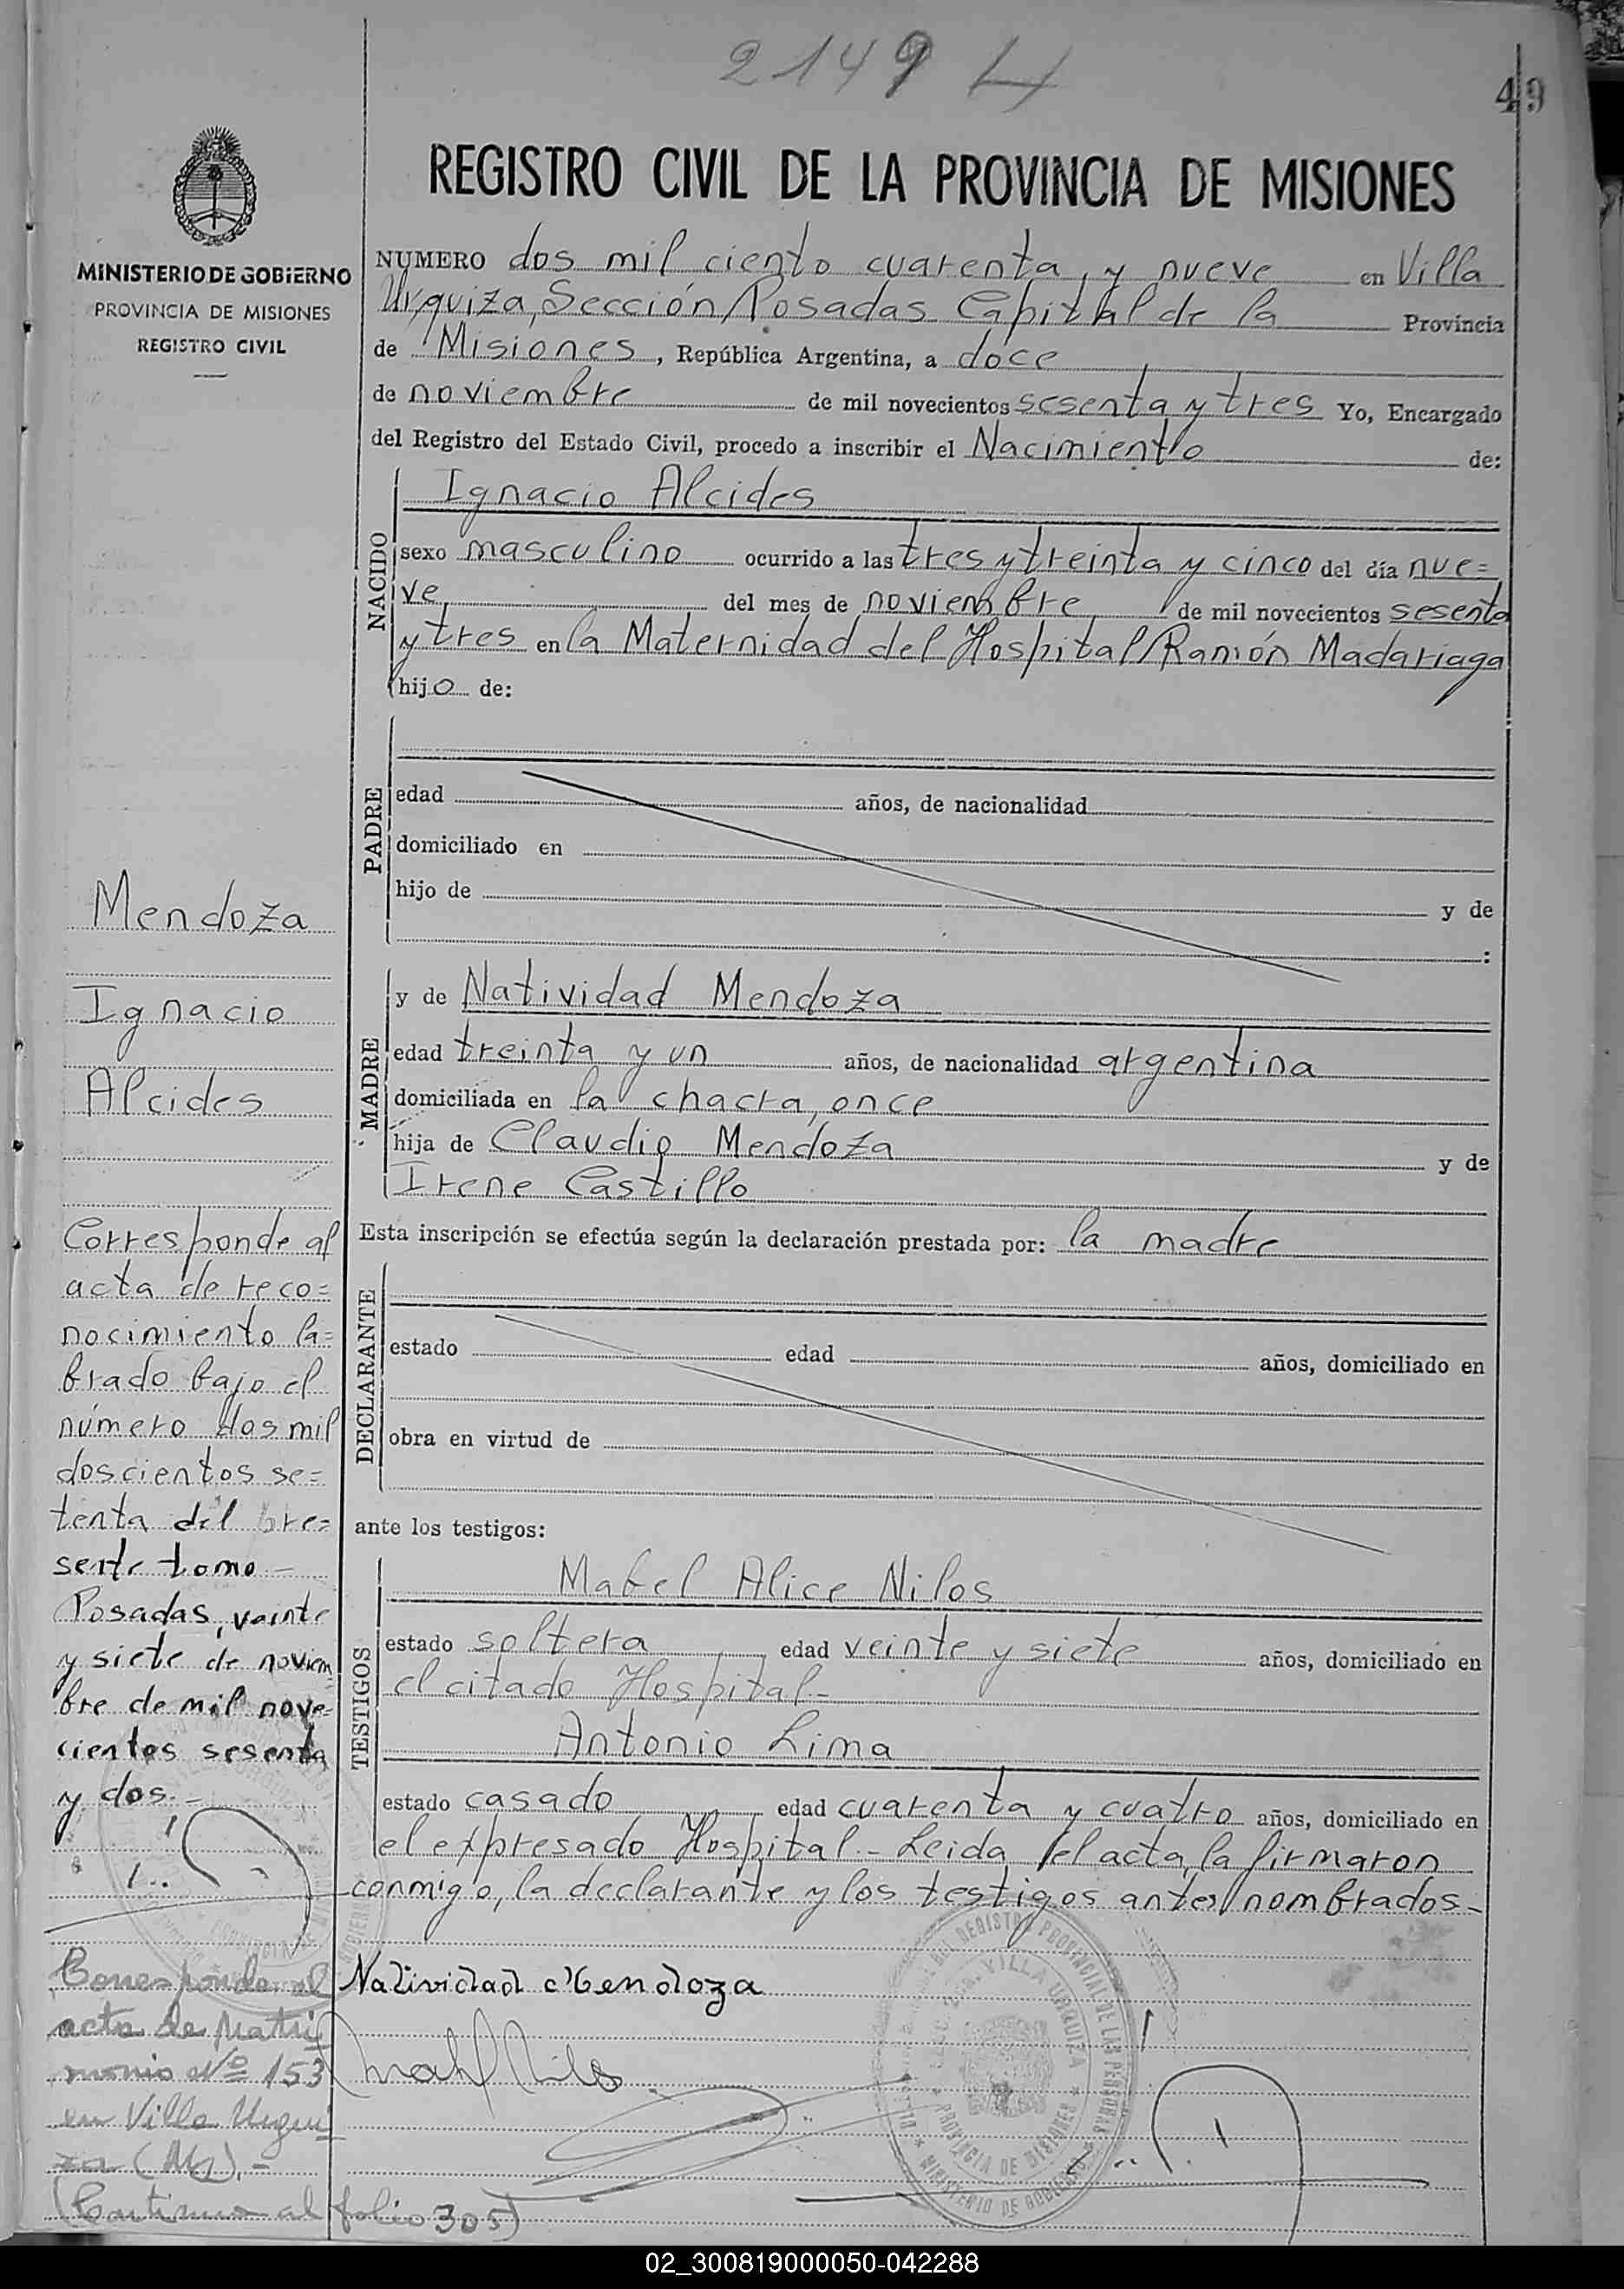 2149
49
REGISTRO CIVIL DE LA PROVINCIA DE MISIONES
MINISTERIO DE GOBIERNO
PROVINCIA DE MISIONES
REGISTRO CIVIL
NUMERO dos mil ciento cuarenta y nueve en Villa
Urquiza, Sección Posadas Capital de la Provincia
de Misiones, República Argentina, a doce
de noviembre de mil novecientos sesenta y tres Yo, Encargado
del Registro del Estado Civil, procedo a inscribir el Nacimiento de:
NACIDO
Ignacio Alcides
sexo masculino ocurrido a las tres y treinta y cinco del día nue=
ve del mes de noviembre de mil novecientos sesenta
y tres en la Maternidad del Hospital Ramón Madariaga
hijo de:
PADRE
edad años, de nacionalidad
domiciliado en
hijo de y de
:
MADRE
y de Natividad Mendoza
edad treinta y un años, de nacionalidad argentina
domiciliada en la chacra once
hija de Claudio Mendoza y de
Irene Castillo
Esta inscripción se efectúa según la declaración prestada por: la madre
DECLARANTE
estado edad años, domiciliado en
obra en virtud de
ante los testigos:
TESTIGOS
Mabel Alice Nilos
estado soltera edad veinte y siete años, domiciliado en
el citado Hospital.-
Antonio Lima
estado casado edad cuarenta y cuatro años, domiciliado en
el expresado Hospital.- Leida el acta, la firmaron
conmigo, la declarante y los testigos antes nombrados.-
Natividad Mendoza
Mendoza
Ignacio
Alcides
Corresponde al
acta de reco=
nocimiento la=
brado bajo el
número dos mil
doscientos se=
tenta del pre=
sente tomo.-
Posadas, veinte
y siete de noviem
bre de mil nove=
cientos sesenta
y dos.-
Corresponde al
acta de Matri
monio Nº 153
en Villa Urqui
za (Ms).-
(Continua al folio 305)
VILLA URQUIZA
PROVINCIA DE MISIONES
MINISTERIO DE GOBIERNO
02_300819000050-042288